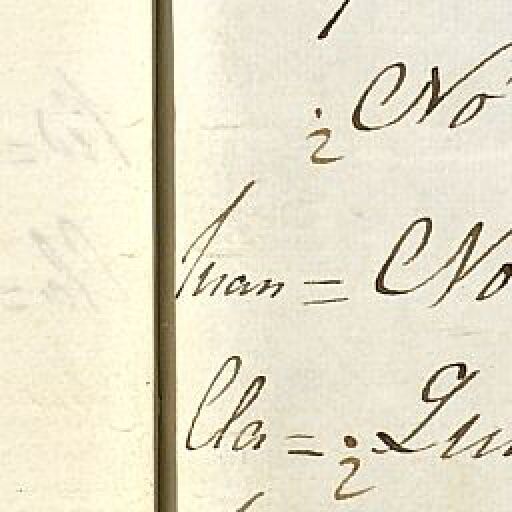 ¿No
Juan = No
Cla = ¿Qui